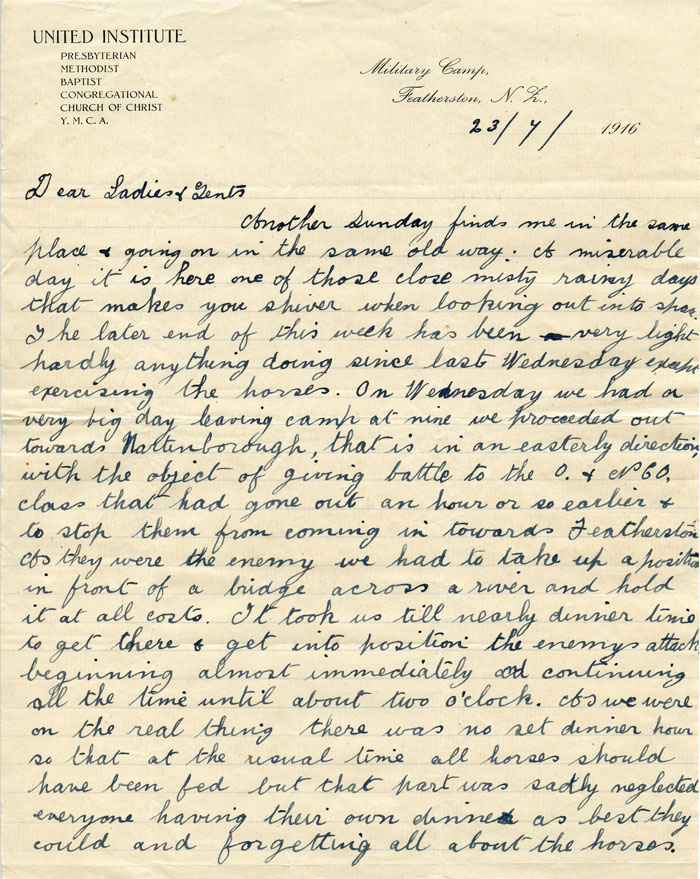 UNITED INSTITUTE
PRESBYTERIAN
METHODIST
BAPTIST
CONGREGATIONAL
CHURCH OF CHRIST
Y. M. C. A.
Military Camp,
Featherston, N. Z.,
23/7/ 1916
Dear Ladies & Gents
Another Sunday finds me in the same
place & going on in the same old way. A miserable
day it is here one of those close misty rainy days
that makes you shiver when looking out into
The later end of this week has been very light
hardly anything doing since last Wednesday except
exercising the horses. On Wednesday we had a
very big day leaving camp at nine we proceeded out
towards Martinborough, that is in an easterly direction,
with the object of giving battle to the O. & NCO,
class that had gone out an hour or so earlier &
to stop them from coming in towards Featherston
As they were the enemy we had to take up a position
in front of a bridge across a river and hold
it at all costs. It took us till nearly dinner time
to get there & get into position the enemys attack
beginning almost immediately and continuing
all the time until about two o'clock. As we were
on the real thing there was no set dinner hour
so that at the usual time all horses should
have been fed but that part was sadly neglected
everyone having their own dinner as best they
could and forgetting all about the horses.